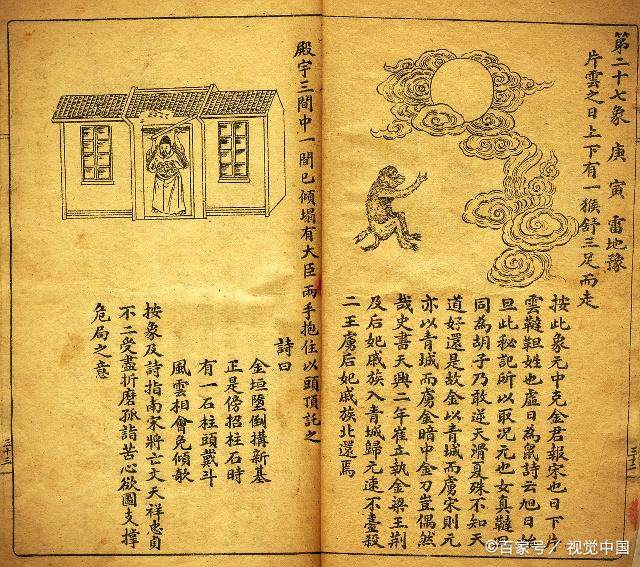 第二十七象 庚寅 雷地豫
片雲之日上下有一猴舒三足而走
按此象元中克金君報宋也日下片
雲韃靼姓也虛日為鼠詩云旭日始
旦此秘記所以取况元也女真韃靼
同為胡子乃敢逆天滑夏殊不知天
道好還是故金以青城而虜宋則元
亦以青城而虜金暗中金刀豈偶然
哉史書天興二年崔立執金梁王荆
及后妃戚族入青城歸元速不臺殺
二王虜后妃戚族北還焉
殿宇三間中一間已傾塌有大臣兩手抱住以頭頂託之
詩曰
金垣墮倒搆新基
正是傍招柱石時
有一石柱頭戴斗
風雲相會免傾欹
按象及詩指南宋將亡文天祥忠貞
不二受盡折磨孤詣苦心欲圖支撐
危局之意
三十三
©百家号/視觉中国